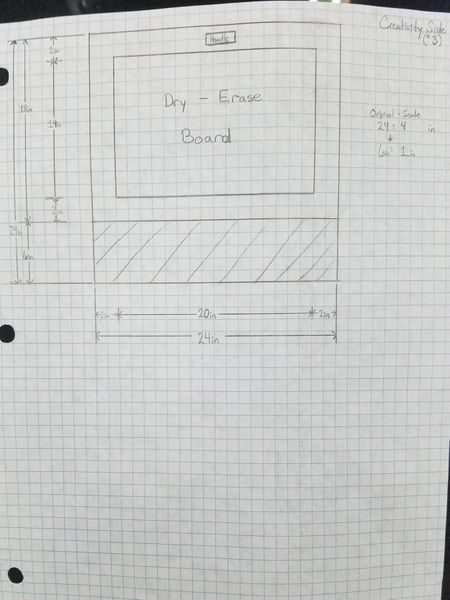 Creativity Side
(#3)
Handle
Dry - Erase
Board
Original : Scale
24 : 4 in
6in : 1in
2in
18in
14in
2in
24in
6in
2in
20in
2in
24in